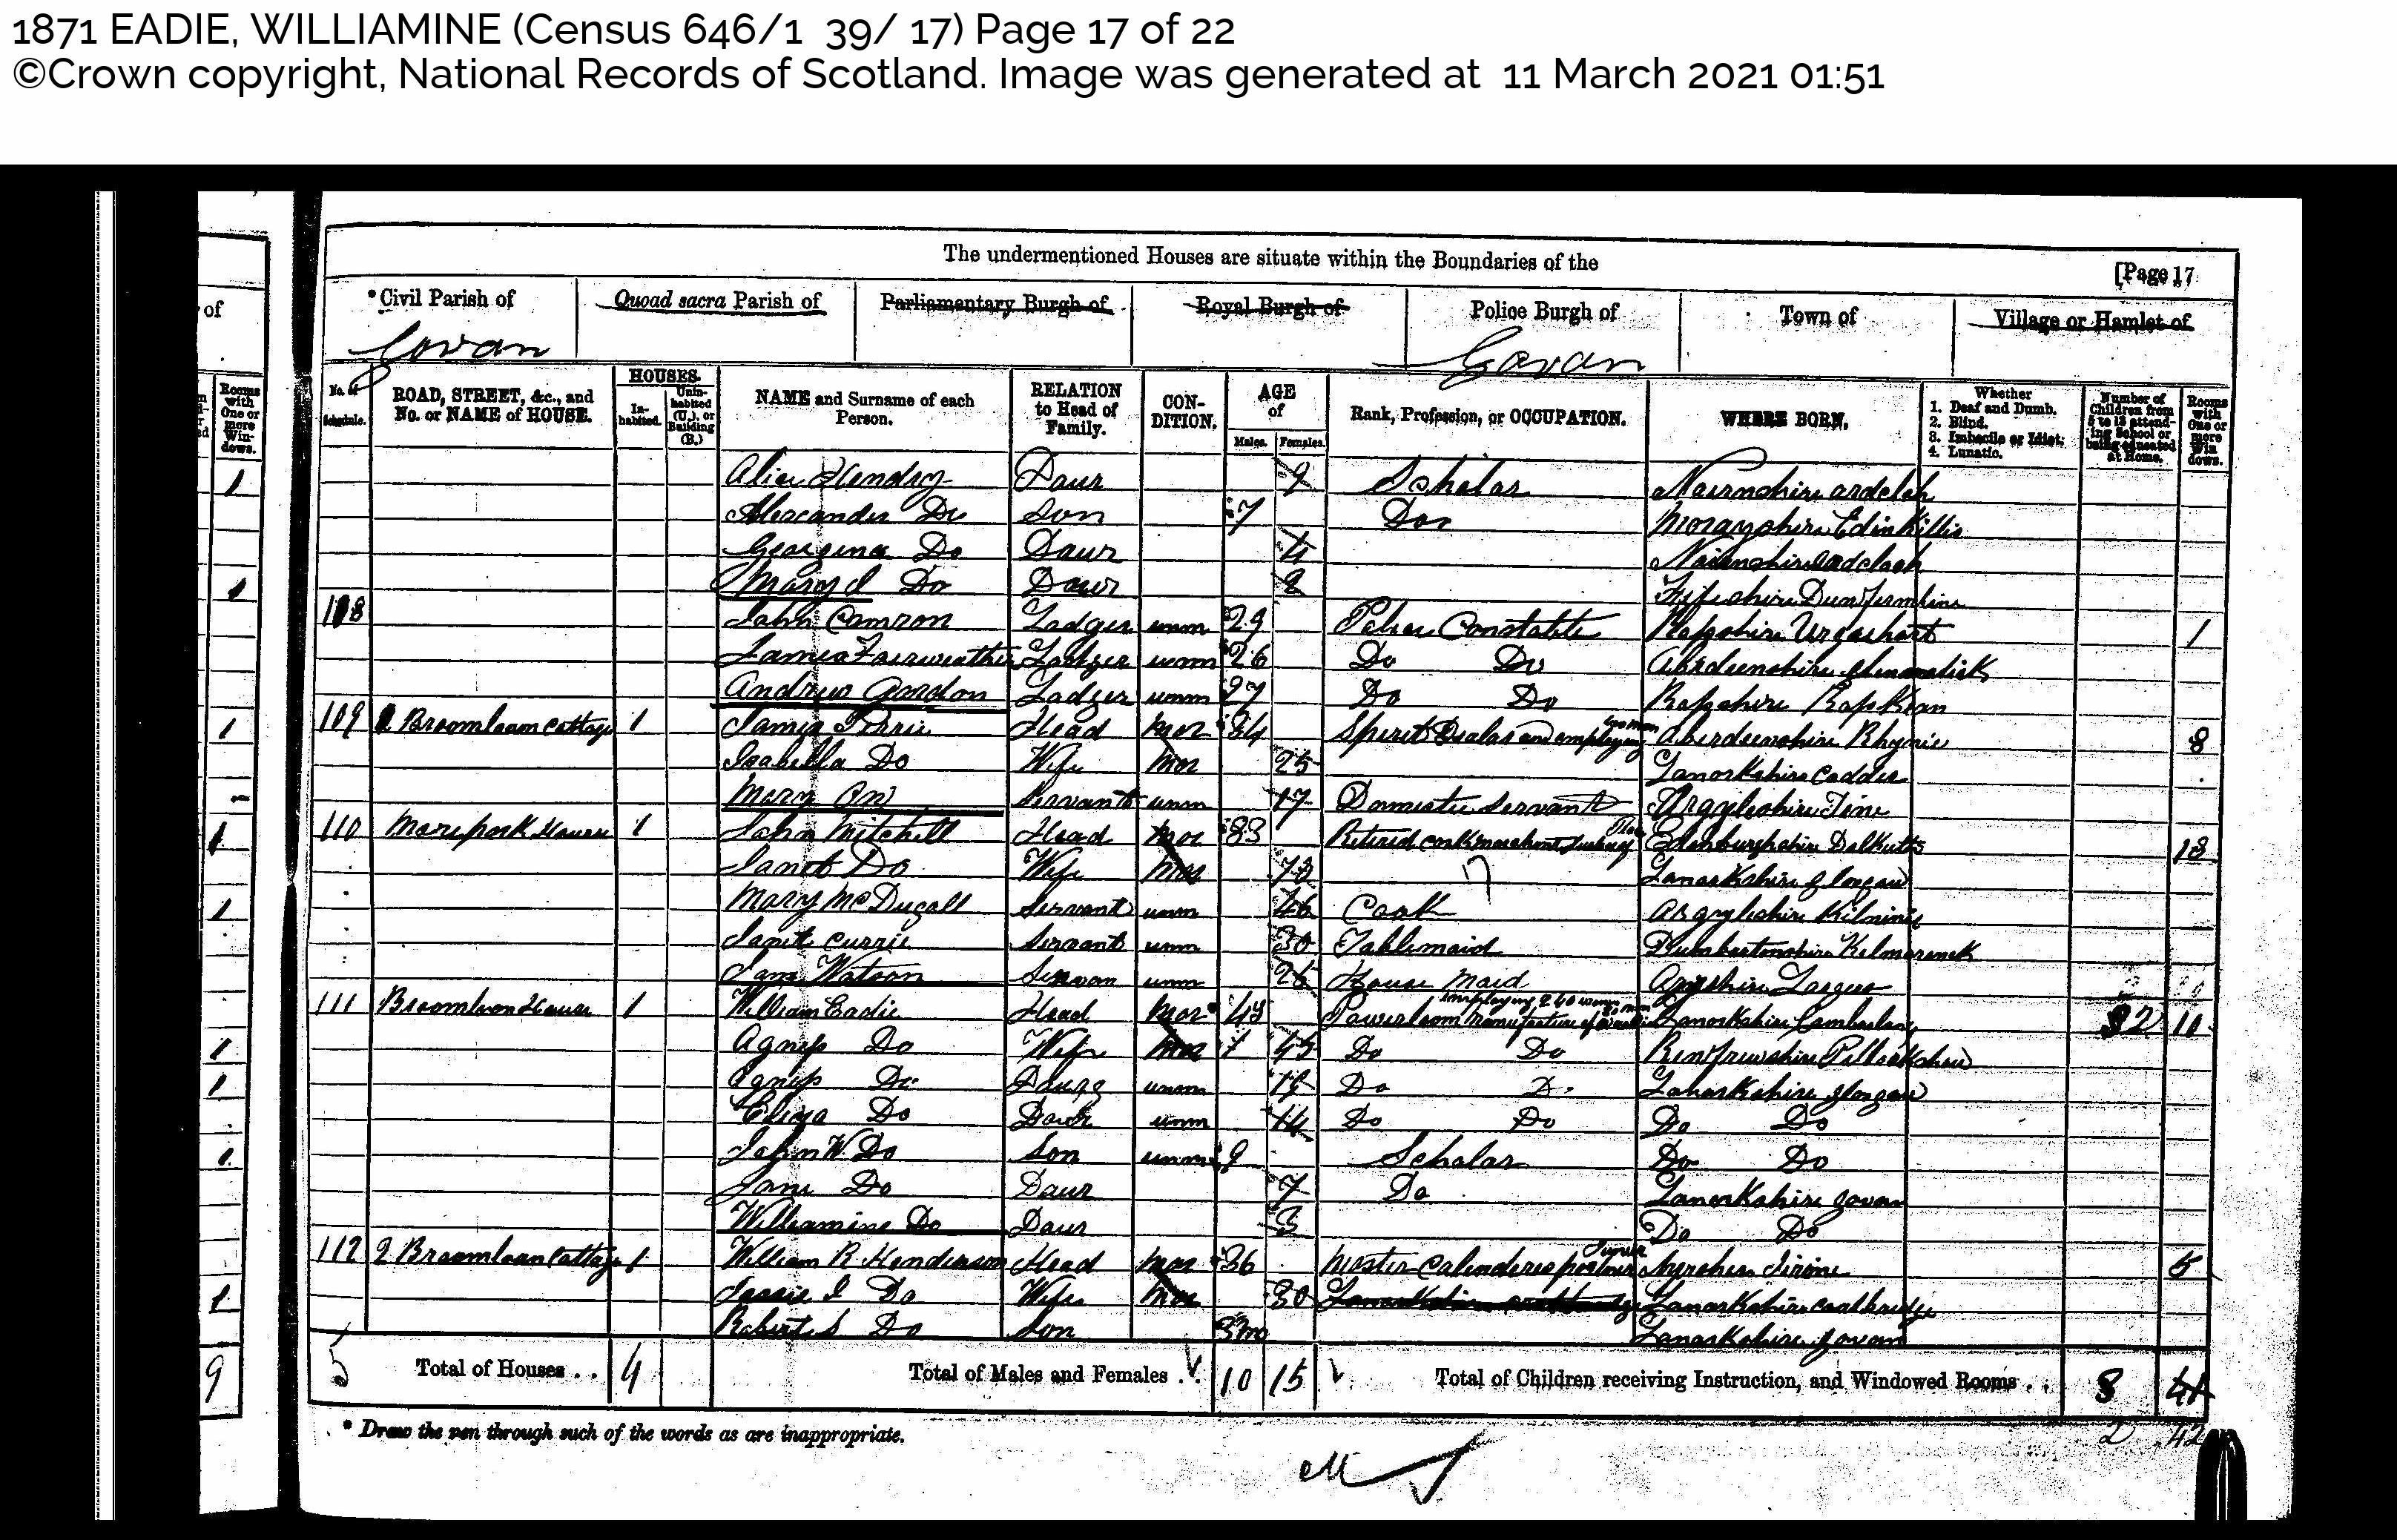 1871 EADIE, WILLIAMINE (Census 646/1 39/ 17) Page 17 of 22
©Crown copyright, National Records of Scotland. Image was generated at 11 March 2021 01:51
The undermentioned Houses are situate within the Boundaries of the
[Page 17
of
*Civil Parish of Quoad sacra Parish of Parliamentary Burgh of Royal Burgh of Police Burgh of Town of Village or Hamlet of
Govan Govan
Rooms with One or more Windows.
No. of Schedule. ROAD, STREET, &c., and No. or NAME of HOUSE. HOUSES. Inhabited. Uninhabited (U.), or Building (B.) NAME and Surname of each Person. RELATION to Head of Family. CONDITION. AGE of Males. Females. Rank, Profession, or OCCUPATION. WHERE BORN. Whether 1. Deaf and Dumb. 2. Blind. 3. Imbecile or Idiot. 4. Lunatic. Number of Children from 5 to 13 attending School or being educated at Home. Rooms with One or more Windows.
Alice Hendry Daur 9 Scholar Nairnshire ardclach
Alexander Do Son 7 Do Morayshire Edinkillie
Georgina Do Daur 4 Nairnshire ardclach
Mary J Do Daur 2 Fifeshire Dunfermline
108 John Camron Lodger unm 29 Police Constable Rossshire Urquhart 1
James Fairweather Lodger unm 26 Do Do Aberdeenshire
Andrew Gordon Lodger unm 27 Do Do Rossshire
109 Broomloan Cottage 1 James Pirrie Head mar 34 Spirit Dealer and employing woman Aberdeenshire Rhynie 8
Isabella Do Wife mar 25 Lanarkshire Cadder
Mary Servant unm 17 Domestic Servant Argyleshire
110 House 1 John Mitchell Head mar 83 Retired merchant Edinburghshire 18
Janet Do Wife mar 73 Lanarkshire Glasgow
Mary McDugall Servant unm 46 Cook Argyleshire
Janet Currie Servant unm 30 Tablemaid Dumbartonshire
Jane Watson Servan unm House Maid Ayrshire
111 Broomloan House 1 William Eadie Head mar 43 Powerloom manufacture employing Lanarkshire 10
Agness Do Wife mar 43 Do Do Renfrewshire Pollockshaw
Agness Do unm Do Do Lanarkshire Glasgow
Eliza Do Daur unm 14 Do Do Do Do
John W Do Son unm 9 Scholar Do Do
Jane Do Daur 7 Do Lanarkshire Govan
Williamine Do Daur 3 Do Do
112 2 Broomloan Cottage 1 William R Henderson Head mar 36 Master Calenderer 5
Jessie I Do Wife mar 30 Lanarkshire Coatbridge
Robert S Do Son 3mo Lanarkshire Govan
5 Total of Houses . . 4 Total of Males and Females . . 10 15 Total of Children receiving Instruction, and Windowed Rooms . . 3 41
* Draw the pen through such of the words as are inappropriate.
2 42